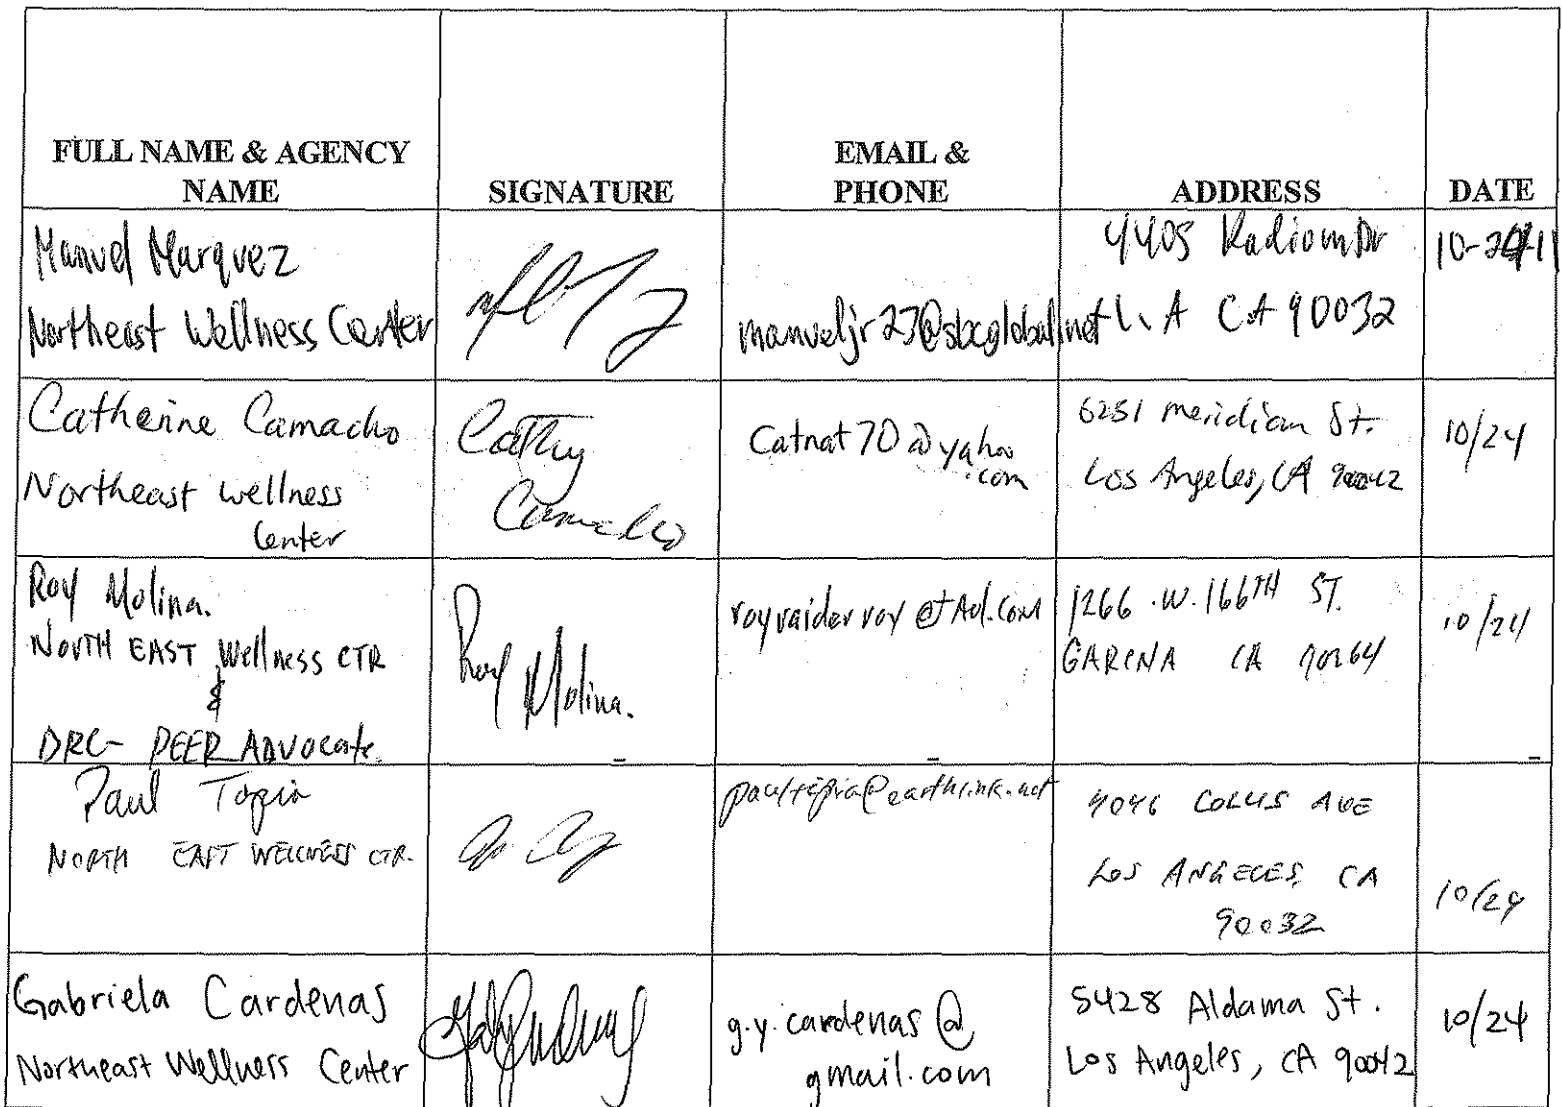 FULL NAME & AGENCY
NAME
SIGNATURE
EMAIL &
PHONE
ADDRESS
DATE
Manuel Marquez
Northeast Wellness Center
manueljr27@sbcglobal.net
4405 Radium Dr
L.A CA 90032
Catherine Camacho
Northeast wellness
Center
Cathy
Camacho
Catnat70@yahoo
.com
meridian St.
Los Angeles, CA 90042
10/24
Roy Molina.
NORTH EAST Wellness CTR
&
DRC- PEER ADVOCate.
Roy Molina.
1266 .W. 166TH ST.
CA
10/24
Paul Tapia
NORTH EAST WELLNESS CTR.
AVE
LOS ANGELES, CA
90032
10/24
Gabriela Cardenas
Northeast Wellness Center
g.y.cardenas@
gmail.com
5428 Aldama St.
Los Angeles, CA 90042
10/24